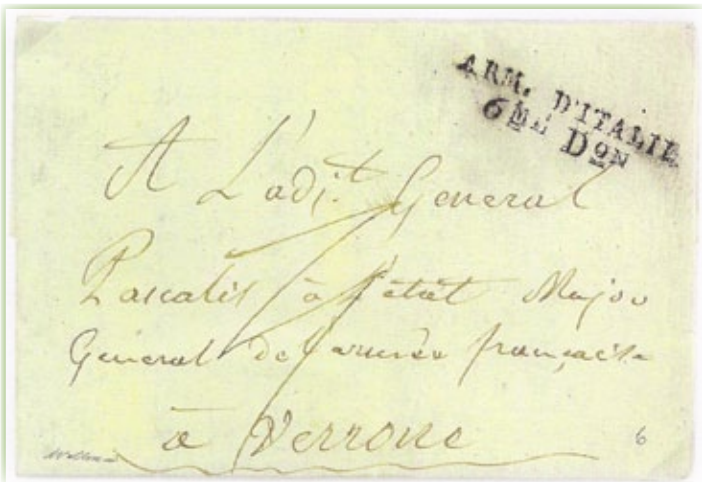 ARM. D'ITALIE
6ME DON
A L'adj.t General
Pascalis à l'état Major
General de l'armée française
à Verrone
6